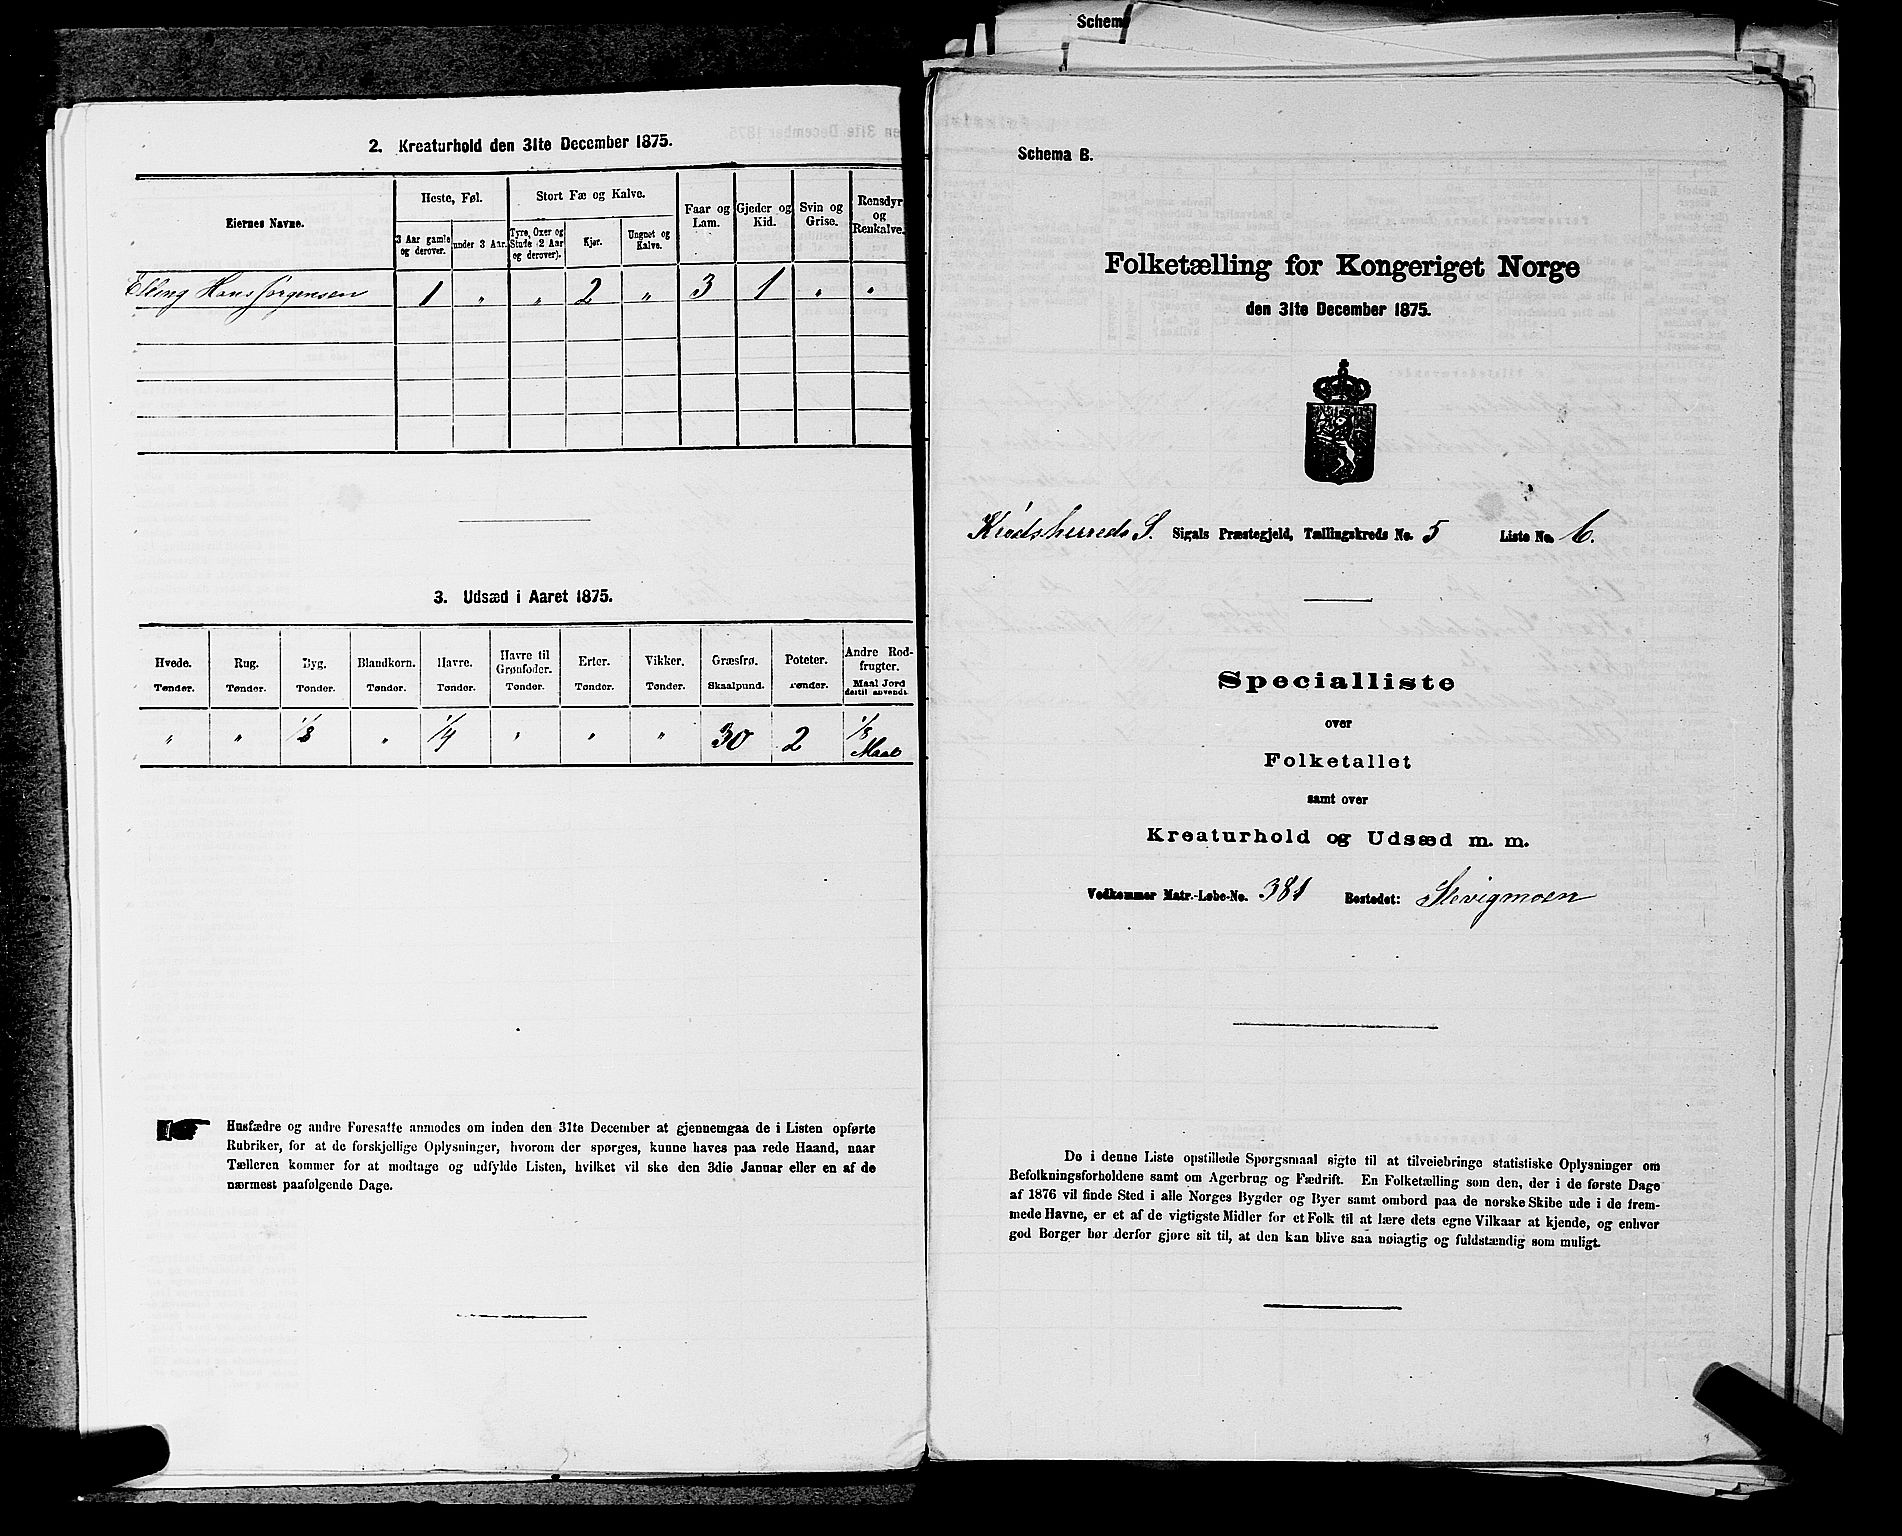 2. Kreaturhold den 31te December 1875.
Eiernes Navne.
Heste, Føl.
3 Aar gamle og derover.
under 3 Aar.
Stort Fæ og Kalve.
Tyre, Oxer og Stude (2 Aar og derover).
Kjør.
Ungnet og Kalve.
Faar og Lam.
Gjeder og Kid.
Svin og Grise.
Rensdyr og Renkalve.
Elling Hans Jørgensen 1 " " 2 " 3 1 " "
3. Udsæd i Aaret 1875.
Hvede. Tønder.
Rug. Tønder.
Byg. Tønder.
Blandkorn. Tønder.
Havre. Tønder.
Havre til Grønfoder. Tønder.
Erter. Tønder.
Vikker. Tønder.
Græsfrø. Skaalpund.
Poteter. Tønder.
Andre Rodfrugter. Maal Jord dertil anvendt.
" " 1/8 " 1/4 " " " 30 2 1/8 Maal
Husfædre og andre Foresatte anmodes om inden den 31te December at gjennemgaa de i Listen opførte
Rubriker, for at de forskjellige Oplysninger, hvorom der spørges, kunne haves paa rede Haand, naar
Tælleren kommer for at modtage og udfylde Listen, hvilket vil ske den 3die Januar eller en af de
nærmest paafølgende Dage.
Schem
Schema B.
Folketælling for Kongeriget Norge
den 31te December 1875.
Krødsherreds S. Sigals Præstegjeld, Tællingskreds No. 5 Liste No. 6.
Specialliste
over
Folketallet
samt over
Kreaturhold og Udsæd m. m.
Vedkommer Matr.-Løbe-No. 381 Bostedet: Slevigmoen
De i denne Liste opstillede Spørgsmaal sigte til at tilveiebringe statistiske Oplysninger om
Befolkningsforholdene samt om Agerbrug og Fædrift. En Folketælling som den, der i de første Dage
af 1876 vil finde Sted i alle Norges Bygder og Byer samt ombord paa de norske Skibe ude i de frem-
mede Havne, er et af de vigtigste Midler for et Folk til at lære dets egne Vilkaar at kjende, og enhver
god Borger bør derfor gjøre sit til, at den kan blive saa nøiagtig og fuldstændig som muligt.